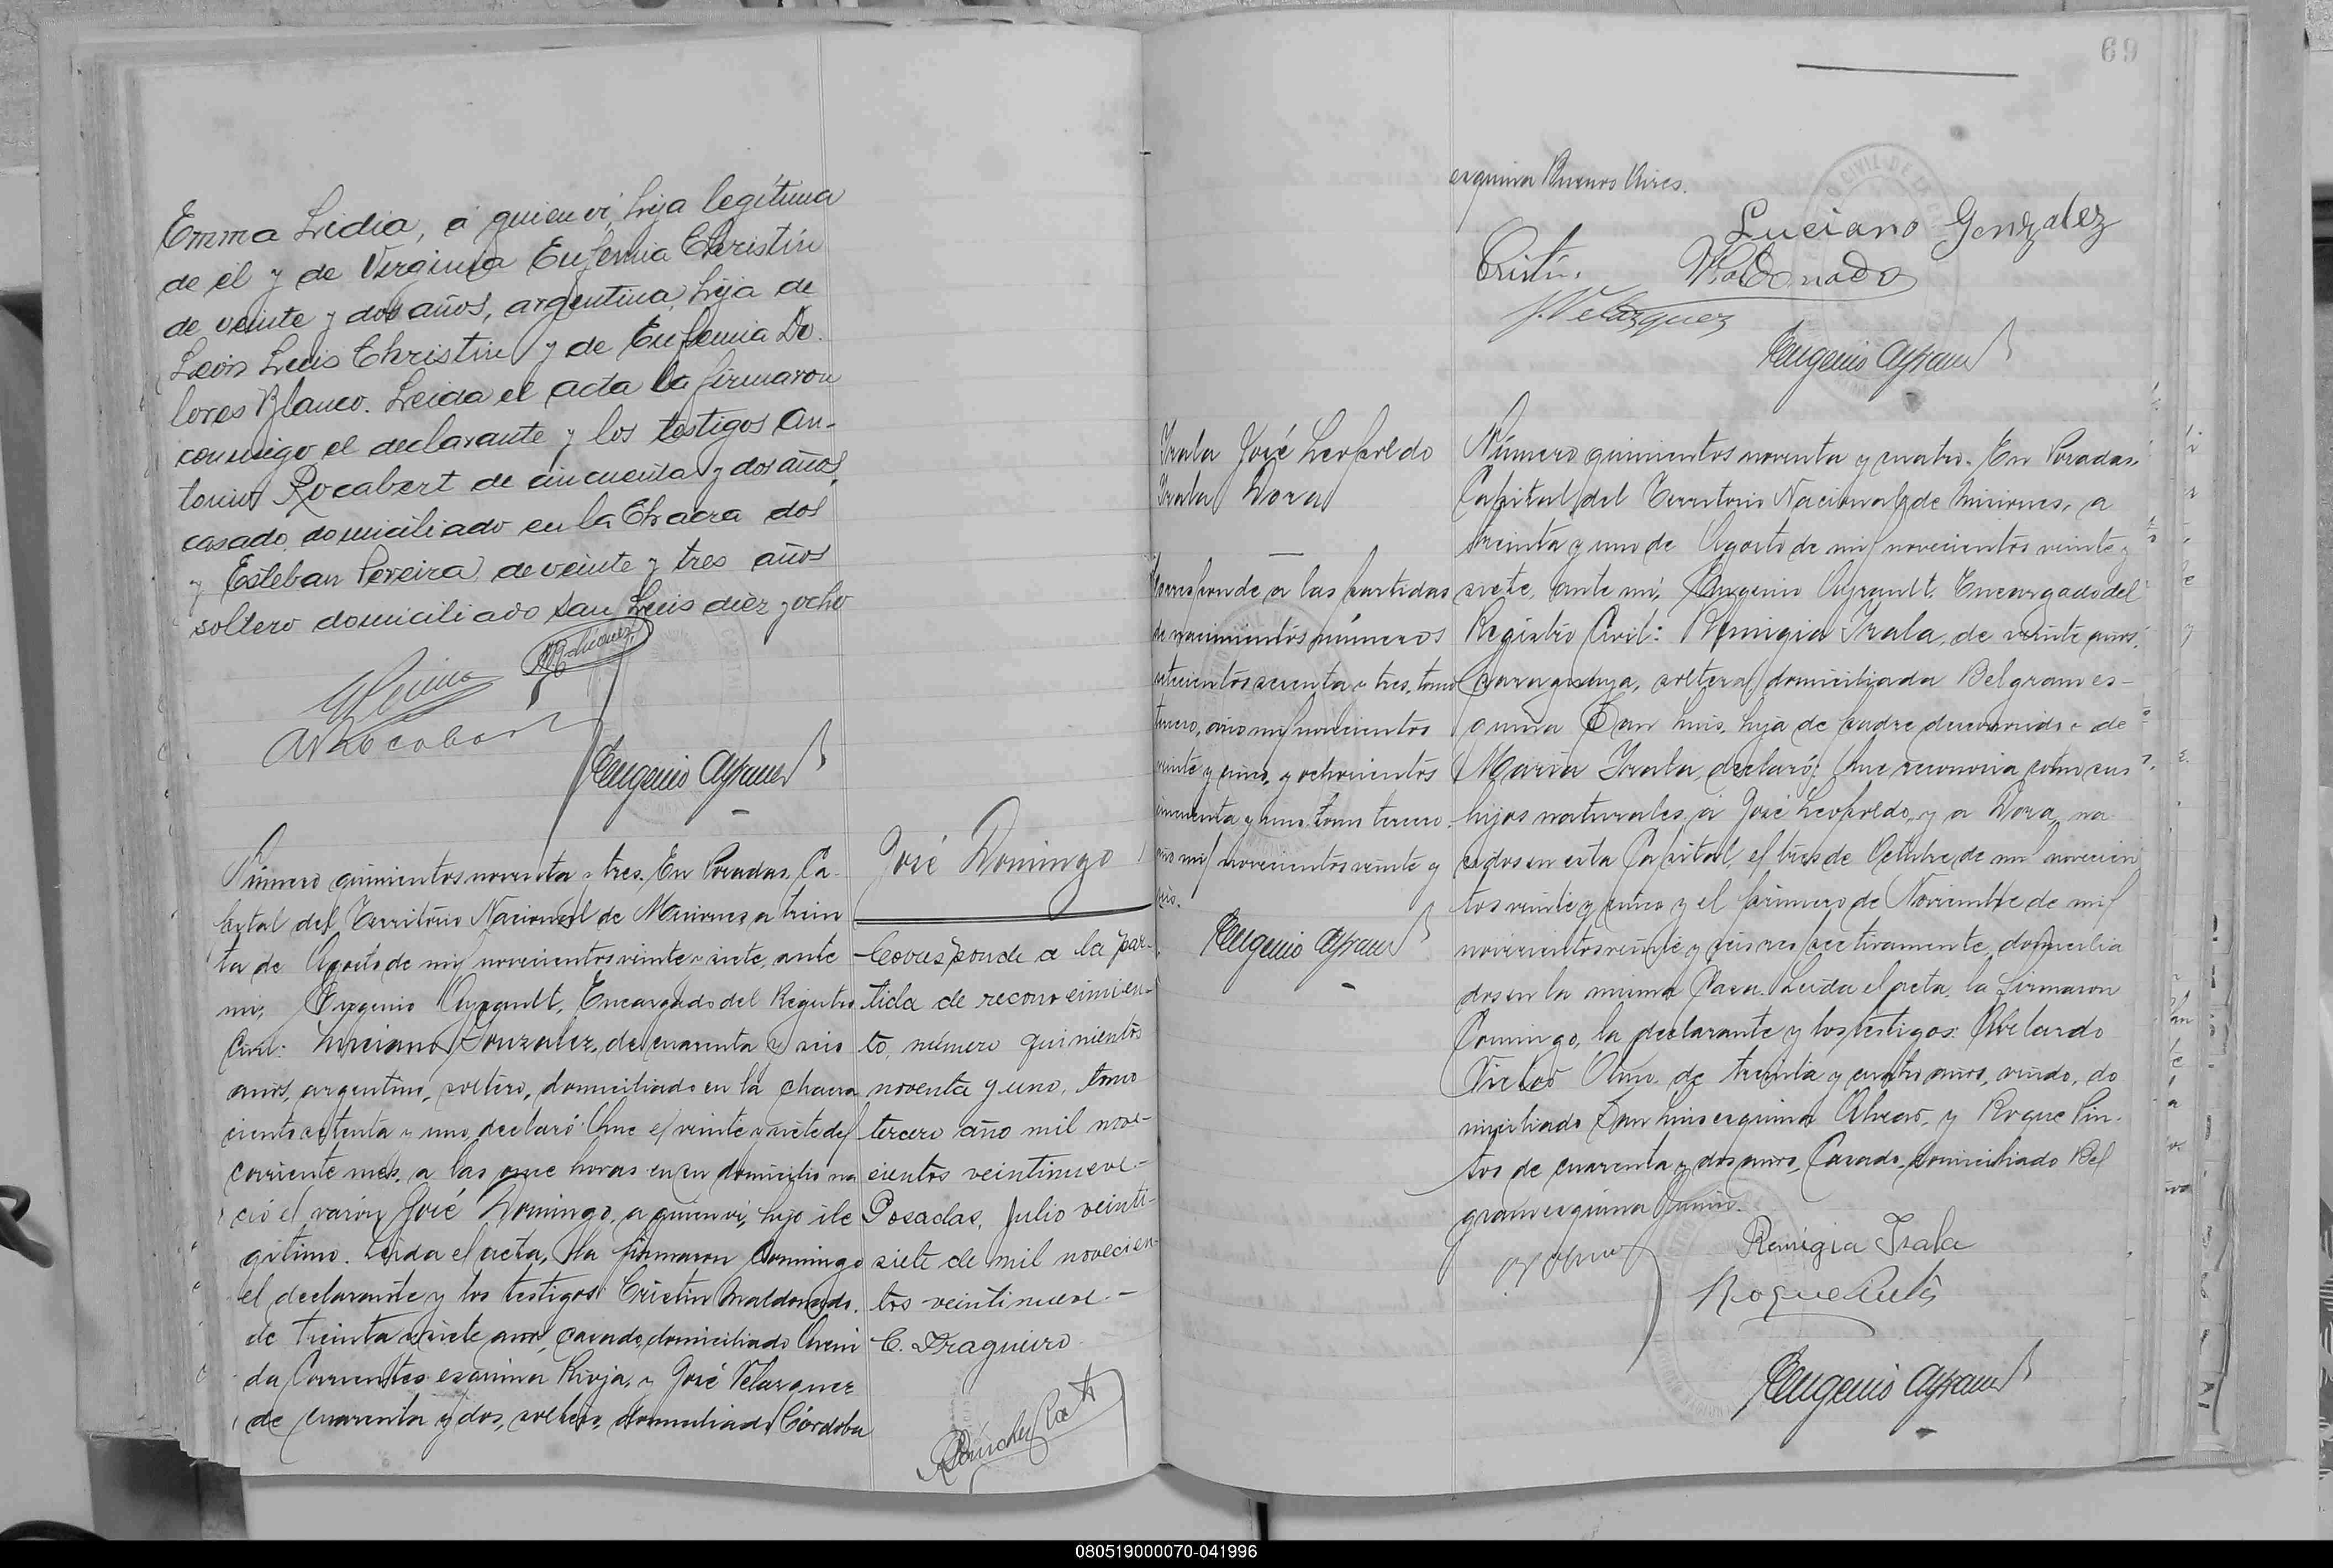 Emma Lidia, a quien ví, hija legítima
de él y de Virginia Eufemia Christín
de veinte y dos años, argentina, hija de
León Luis Christin y de Eufemia Do-
lores Blanco. Leida el acta la firmaron
conmigo el declarante y los testigos An-
tonio Rocabert de cincuenta y dos años,
casado, domiciliado en la Chacra dos
y Esteban Pereira, de veinte y tres años
soltero domiciliado San Luis diez y ocho
Eugenio Ayrault
Número quinientos noventa y tres. En Posadas, Ca-
pital del Territorio Nacional de Misiones, a trein
ta de Agosto de mil novecientos veinte y siete, ante
mí, Eugenio Ayrault, Encargado del Registro
Civil: Luciano Gonzalez, de cuarenta y seis
años, argentino, soltero, domiciliado en la chacra
ciento setenta y uno, declaró: Que el veinte y siete del
corriente mes, a las once horas en su domicilio na
ció el varón José Domingo, a quien ví, hijo ile
gítimo. Leída el acta, la firmaron conmigo
el declarante y los testigos: Cristín Maldonado.
de treinta y siete años, casado, domiciliado Aveni
da Corrientes esquina Rioja, y José Velazquez
de cuarenta y dos, soltero, domiciliado Córdoba
José Domingo
Corresponde a la par-
tida de reconocimien-
to, número quinientos
noventa y uno, tomo
tercero año mil nove-
cientos veintinueve-
Posadas, Julio veinti-
siete de mil novecien-
tos veintinueve.-
C. Fragueiro
69
esquina Buenos Aires.
Luciano Gonzalez
Cristín Maldonado
J. Velazquez
Eugenio Ayrault
Irala José Leopoldo
Irala Dora
Corresponde a las partidas
de nacimientos números
setecientos sesenta y tres, tomo
tercero, año mil novecientos
veinte y cinco, y ochocientos
cincuenta y uno, tomo tercero.
año mil novecientos veinte y
seis.
Eugenio Ayrault
Número quinientos noventa y cuatro. En Posadas,
Capital del Territorio Nacional de Misiones, a
treinta y uno de Agosto de mil novecientos veinte y
siete, ante mí, Eugenio Ayrault, Encargado del
Registro Civil: Remigia Irala, de veinte años,
paraguaya, soltera, domiciliada Belgrano es-
quina San Luis, hija de padre desconocido y de
María Irala, declaró: Que reconocía como sus
hijos naturales, a José Leopoldo, y a Dora, na
cidos en esta Capital, el tres de Octubre de mil novecien
tos veinte y cinco y el primero de Noviembre de mil
novecientos veinte y seis respectivamente, domicilia
dos en la misma Casa. Leída el acta, la firmaron
Conmigo, la declarante y los testigos: Abelardo
de treinta y cuatro años, viudo, do
miciliado San Luis esquina y Roque Pin-
tos de cuarenta y dos años, Casado, domiciliado Bel
grano esquina Junín.
Remigia Irala
Roque Pintos
Eugenio Ayrault
080519000070-041996